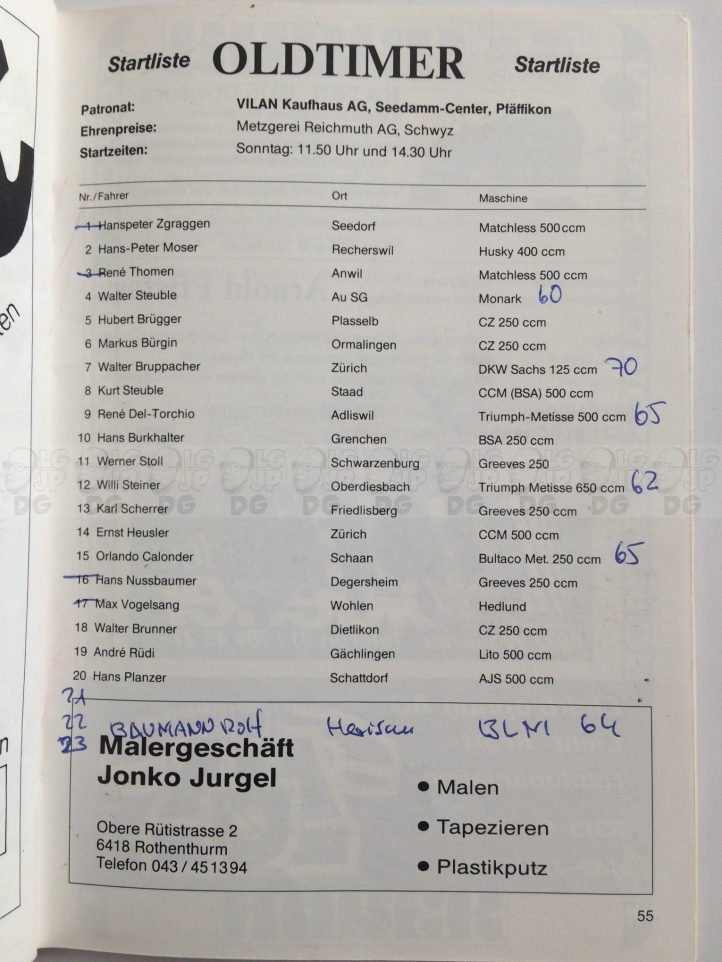 Startliste OLDTIMER Startliste
Patronat: VILAN Kaufhaus AG, Seedamm-Center, Pfäffikon
Ehrenpreise: Metzgerei Reichmuth AG, Schwyz
Startzeiten: Sonntag: 11.50 Uhr und 14.30 Uhr
Nr./Fahrer Ort Maschine
1 Hanspeter Zgraggen Seedorf Matchless 500 ccm
2 Hans-Peter Moser Recherswil Husky 400 ccm
3 René Thomen Anwil Matchless 500 ccm
4 Walter Steuble Au SG Monark 60
5 Hubert Brügger Plasselb CZ 250 ccm
6 Markus Bürgin Ormalingen CZ 250 ccm
7 Walter Bruppacher Zürich DKW Sachs 125 ccm 70
8 Kurt Steuble Staad CCM (BSA) 500 ccm
9 René Del-Torchio Adliswil Triumph-Metisse 500 ccm 65
10 Hans Burkhalter Grenchen BSA 250 ccm
11 Werner Stoll Schwarzenburg Greeves 250
12 Willi Steiner Oberdiesbach Triumph Metisse 650 ccm 62
13 Karl Scherrer Friedlisberg Greeves 250 ccm
14 Ernst Heusler Zürich CCM 500 ccm
15 Orlando Calonder Schaan Bultaco Met. 250 ccm 65
16 Hans Nussbaumer Degersheim Greeves 250 ccm
17 Max Vogelsang Wohlen Hedlund
18 Walter Brunner Dietlikon CZ 250 ccm
19 André Rüdi Gächlingen Lito 500 ccm
20 Hans Planzer Schattdorf AJS 500 ccm
21
22 BAUMANN Rolf Herisau 64
23
Malergeschäft
Jonko Jurgel
Obere Rütistrasse 2
6418 Rothenthurm
Telefon 043 / 45 13 94
● Malen
● Tapezieren
● Plastikputz
55